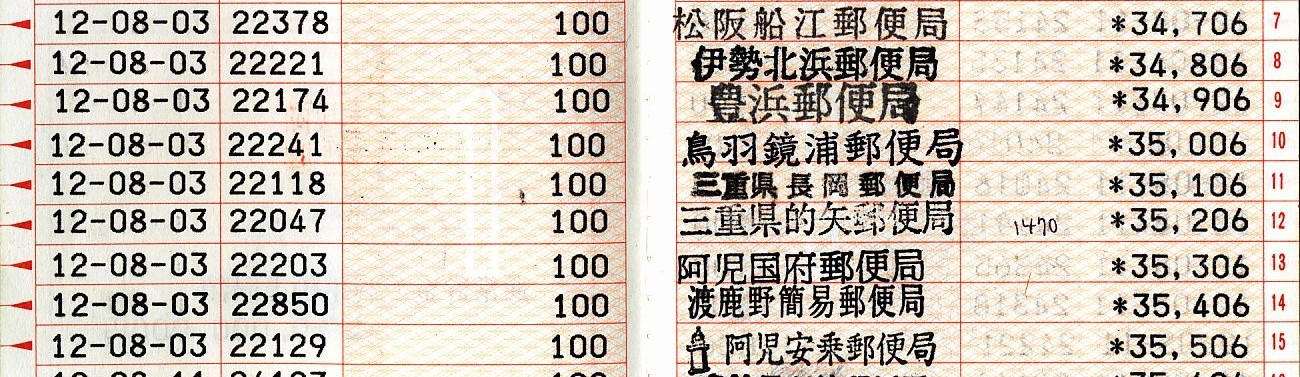 12-08-03 22378 100 松阪船江郵便局 *34,706 7
12-08-03 22221 100 伊勢北浜郵便局 *34,806 8
12-08-03 22174 100 豊浜郵便局 *34,906 9
12-08-03 22241 100 鳥羽鏡浦郵便局 *35,006 10
12-08-03 22118 100 三重県長岡郵便局 *35,106 11
12-08-03 22047 100 三重県的矢郵便局 1470 *35,206 12
12-08-03 22203 100 阿児国府郵便局 *35,306 13
12-08-03 22850 100 渡鹿野簡易郵便局 *35,406 14
12-08-03 22129 100 阿児安乗郵便局 *35,506 15